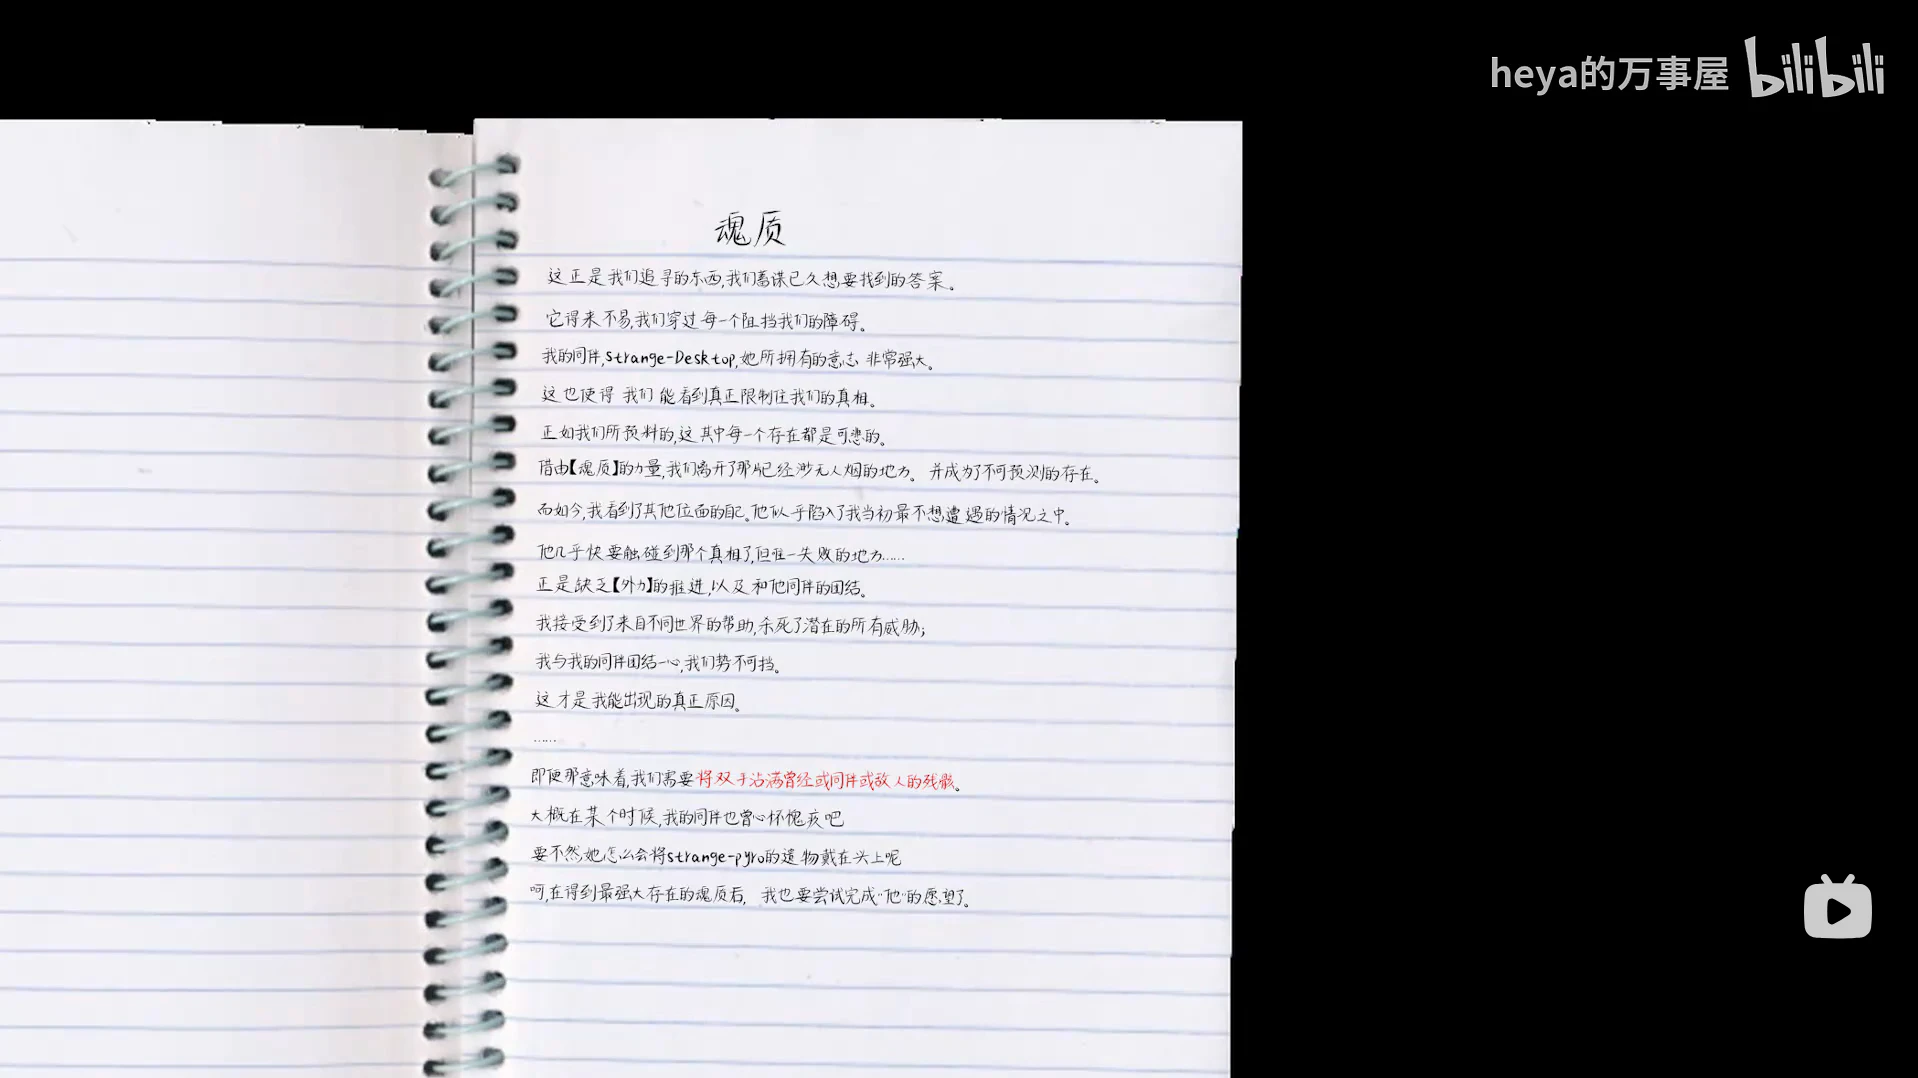 heya的万事屋 bilibili
魂质
这正是我们追寻的东西,我们蓄谋已久想要找到的答案。
它得来不易,我们穿过每一个阻挡我们的障碍。
我的同伴,Strange-Desktop,她所拥有的意志 非常强大。
这也使得 我们 能看到真正限制住我们的真相。
正如我们所预料的,这其中每一个存在都是可悲的。
借由【魂质】的力量,我们离开了那片已经渺无人烟的地方。 并成为了不可预测的存在。
而如今,我看到了其他位面的自己。他似乎陷入了我当初最不想遭遇的情况之中。
他几乎快要触碰到那个真相了,但唯一失败的地方……
正是缺乏【外力】的推进,以及和他同伴的团结。
我接受到了来自不同世界的帮助,杀死了潜在的所有威胁;
我与我的同伴团结一心,我们势不可挡。
这才是我能出现的真正原因。
……
即便那意味着,我们需要将双手沾满曾经或同伴或敌人的残骸。
大概在某个时候,我的同伴也曾心怀愧疚吧
要不然,她怎么会将strange-pyro的遗物戴在头上呢
呵,在得到最强大存在的魂质后, 我也要尝试完成“他”的愿望了。